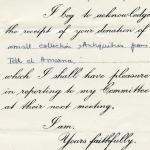 I beg to acknowledge
the receipt of your donation of
small collection Antiquities from
Tell el Amarna,
which I shall have pleasure
in reporting to my Committee
at their next meeting.
I am,
Yours faithfully,